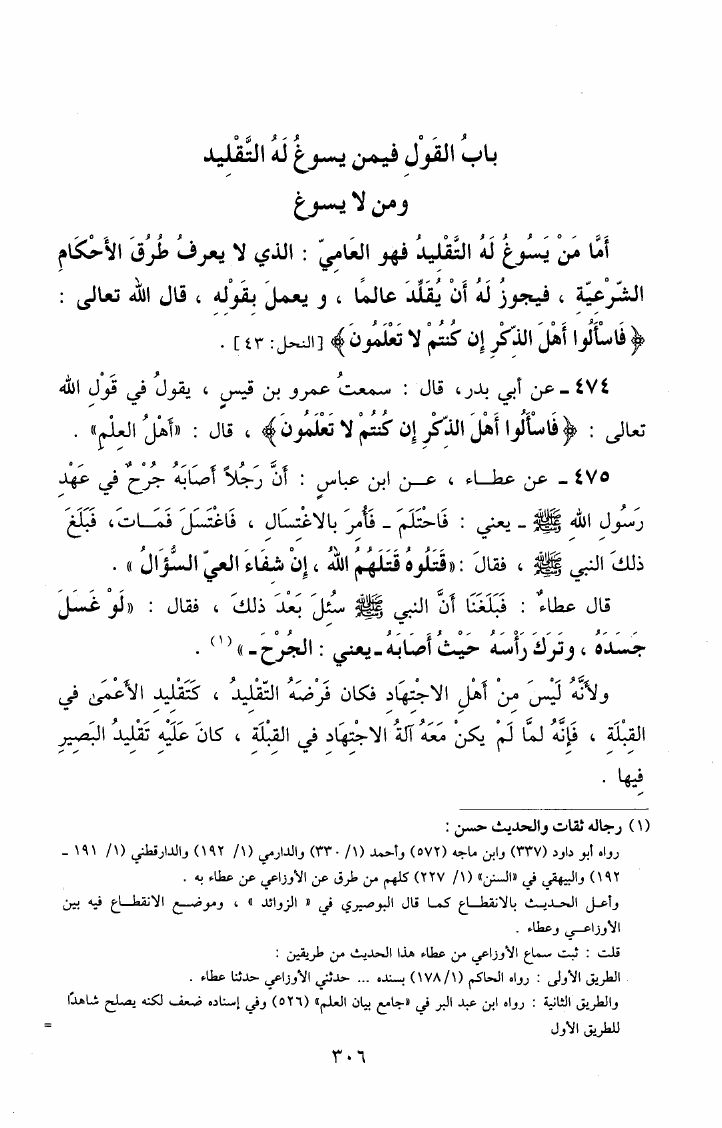 بابُ القَوْلِ فيمن يسوغُ لَهُ التَّقْليد
ومن لا يسوغ
أمَّا مَنْ يَسُوغُ لَهُ التَّقْليدُ فهو العَاميّ : الذي لا يعرفُ طُرُقَ الأحْكَامِ
الشّرْعيّةِ ، فيجوزُ لَهُ أنْ يُقَلِّدَ عالمًا ، و يعملَ بقَوْلهِ ، قال الله تعالى :
﴿ فَاسْأَلُوا أَهْلَ الذِّكْرِ إِن كُنتُمْ لا تَعْلَمُونَ ﴾ [النحل: ٤٣] .
٤٧٤ ـ عن أبي بدر، قال : سمعتُ عمرو بن قيسٍ ، يقولُ في قَوْلِ الله
تعالى : ﴿ فَاسْأَلُوا أَهْلَ الذِّكْرِ إِن كُنتُمْ لا تَعْلَمُونَ ﴾ ، قال : «أهْلُ العِلْمِ» .
٤٧٥ ـ عن عطـاء ، عـن ابن عباسٍ : أنَّ رَجُلاً أصَابَهُ جُرْحٌ في عَهْدِ
رَسُولِ اللهِ ﷺ ـ يعني : فَاحْتَلَمَ ـ فَأُمرَ بالاغْتِسَالِ ، فَاغْتَسَلَ فَمَـاتَ، فَبَلَغَ
ذلكَ النبي ﷺ ، فقالَ :«قَتَلُوهُ قَتَلَهُمُ اللهُ ، إنْ شفَاءَ العيّ السُّؤَالُ » .
قال عطاءٌ : فَبَلَغَنَا أنَّ النبي ﷺ سُئلَ بَعْدَ ذلكَ ، فقال : «لَوْ غَسَلَ
جَسَدَهُ ، وتَرَكَ رَأْسَهُ حَيْثُ أصَابَهُ ـ يعني : الجُرْحَ ـ » (١) .
ولأنَّهُ لَيْسَ مِنْ أهْلِ الاجْتِهَادِ فكان فَرْضَهُ التّقْليدُ ، كَتَقْليدِ الأَعْمَى في
القِبْلَةِ ، فَإنَّهُ لمَّا لَمْ يكنْ مَعَهُ آلةُ الاجْتِهَادِ في القِبْلَةِ ، كانَ عَلَيْهِ تَقْليدُ البَصيرِ
فيهَا .
(١) رجاله ثقات والحديث حسن :
رواه أبو داود (٣٣٧) وابن ماجه (٥٧٢) وأحمد (١/ ٣٣٠) والدارمي (١/ ١٩٢) والدارقطني (١/ ١٩١ ـ
١٩٢) والبيهقي في «السنن» (١/ ٢٢٧) كلهم من طرق عن الأوزاعي عن عطاء به .
وأعـل الحـديـث بالانقطـاع كمـا قال البوصيري في « الزوائد » ، وموضـع الانقطـاع فيه بين
الأوزاعـي وعطاء .
قلت : ثبت سماع الأوزاعي من عطاء هذا الحديث من طريقين :
الطريق الأولى : رواه الحاكم (١٧٨/١) بسنده ... حدثني الأوزاعي حدثنا عطاء .
والطريق الثانية : رواه ابن عبد البر في «جامع بيان العلم» (٥٢٦) وفي إسناده ضعف لكنه يصلح شاهدًا
للطريق الأول =
٣٠٦